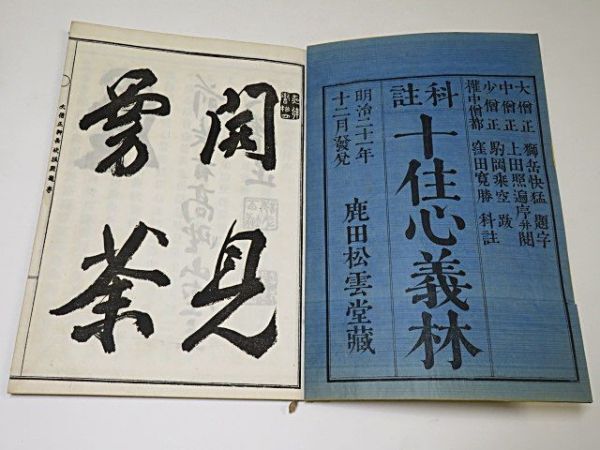 大僧正 獅岳快猛 題字
中僧正 上田照遍 序并閲
少僧正 駒岡乘空 跋
權中僧都 窪田寛勝 科註
科註
十住心義林
明治二十一年
十二月發兌
鹿田松雲堂藏
開見